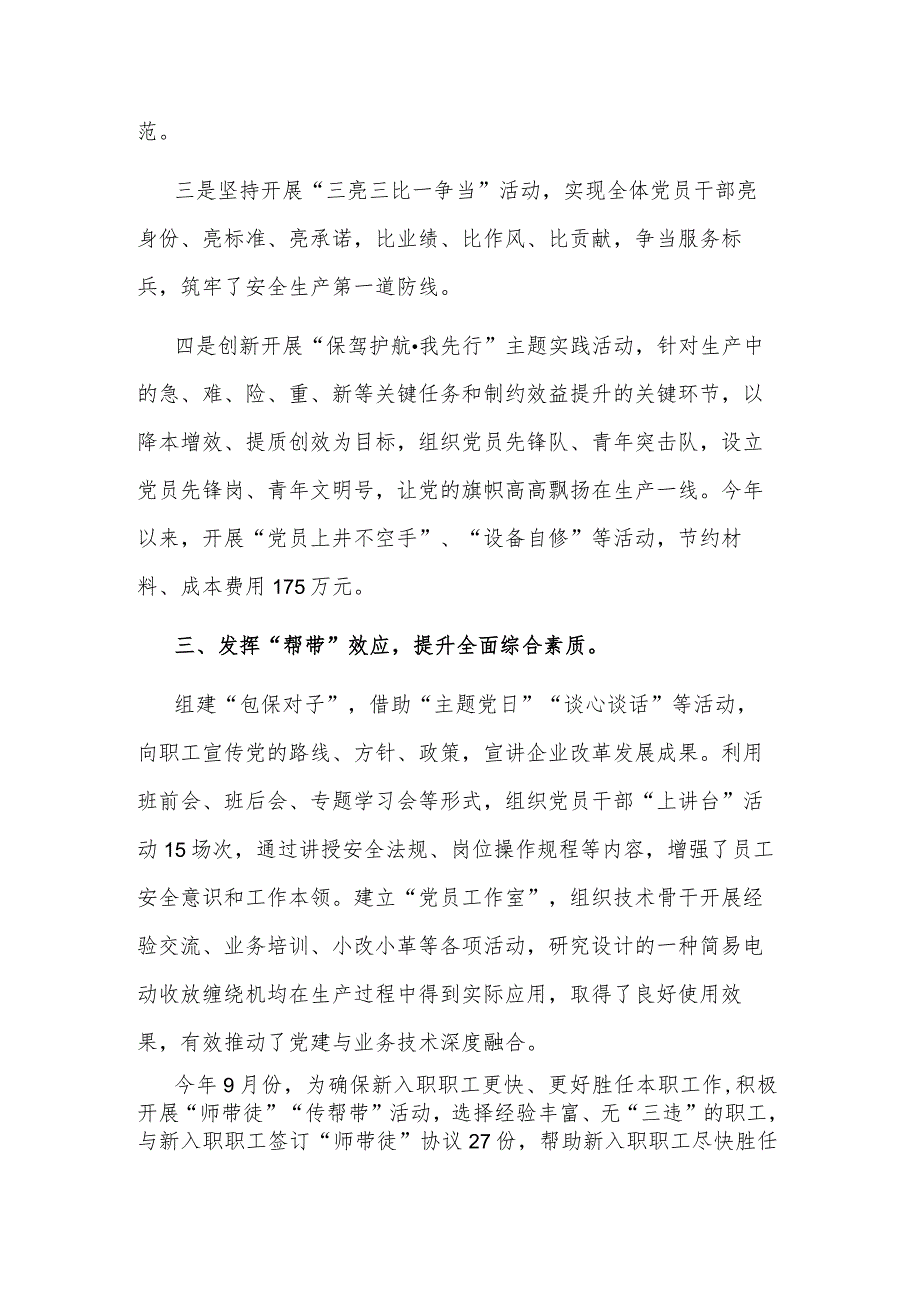 范。
三是坚持开展“三亮三比一争当”活动，实现全体党员干部亮
身份、亮标准、亮承诺，比业绩、比作风、比贡献，争当服务标
兵，筑牢了安全生产第一道防线。
四是创新开展“保驾护航•我先行”主题实践活动，针对生产中
的急、难、险、重、新等关键任务和制约效益提升的关键环节，以
降本增效、提质创效为目标，组织党员先锋队、青年突击队，设立
党员先锋岗、青年文明号，让党的旗帜高高飘扬在生产一线。今年
以来，开展“党员上井不空手”、“设备自修”等活动，节约材
料、成本费用 175 万元。
三、发挥“帮带”效应，提升全面综合素质。
组建“包保对子”，借助“主题党日”“谈心谈话”等活动，
向职工宣传党的路线、方针、政策，宣讲企业改革发展成果。利用
班前会、班后会、专题学习会等形式，组织党员干部“上讲台”活
动 15 场次，通过讲授安全法规、岗位操作规程等内容，增强了员工
安全意识和工作本领。建立“党员工作室”，组织技术骨干开展经
验交流、业务培训、小改小革等各项活动，研究设计的一种简易电
动收放缠绕机均在生产过程中得到实际应用，取得了良好使用效
果，有效推动了党建与业务技术深度融合。
今年 9 月份，为确保新入职职工更快、更好胜任本职工作,积极
开展“师带徒”“传帮带”活动，选择经验丰富、无“三违”的职工，
与新入职职工签订“师带徒”协议 27 份，帮助新入职职工尽快胜任